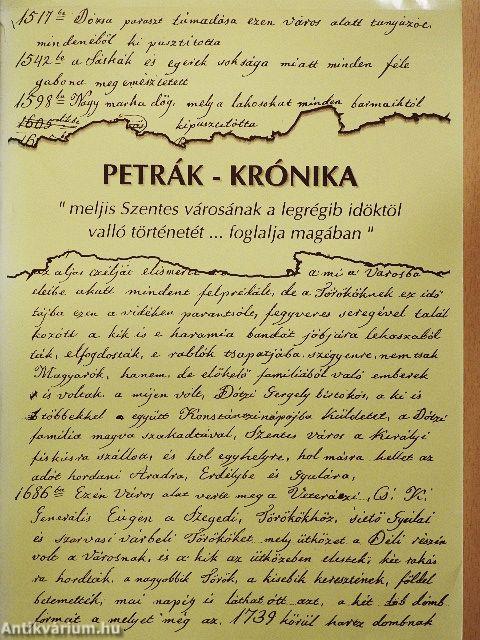 1517be Dózsa paraszt támadása ezen város alatt tanyázot
mindenéből ki pusztitotta
1542be a Sáskák és egerek soksága miatt minden féle
gabona meg emésztetett
1598ba Nagy marha dög, mely a lakosokat minden barmaiktól
kipusztitotta
PETRÁK - KRÓNIKA
" meljis Szentes városának a legrégib időktöl
valló történetét ... foglalja magában "
az aljas czélját elismerte a mi a Városba
eleibe akatt mindent felprédált, de a Törököknek ez idő
tájba ezen a vidéken parantsoló, fegyveres seregével talál
kozott a kik is e haramia bandát jobbjára lekaszabol
ták, elfogdosták, e rablók tsapatjába szégyenre, nem tsak
Magyarok, hanem de előkelő familiából való emberek
is voltak. a mijen volt, Dótzi Gergely birtokos, a ki is
többekkel együtt Konstánczinápojba küldetet, a Dótzi
familia magva szakadtával, Szentes város a Királyi
fiskusra szállott, és hol egyhelyre, hol másra kellet az
adót hordani Aradra, Erdéjbe és Gyulára,
1686ba Ezen Város alat verte meg a Veteráni, Cs. K.
Generális Eugen a Szegedi, Törökökhöz, siető Gyulai
és Szarvasi várbeli Törököket mely ütközet a Déli részin
volt a Városnak, és a kik az ütközeben elestek, két rakás
ra hordták, a nagyobbik Török, a kisebik keresztének, földel
betemették, mai napig is látható ott azt, a két domb
formát a melyet még az, 1739 körül hartz dombnak
Antikvarium.hu